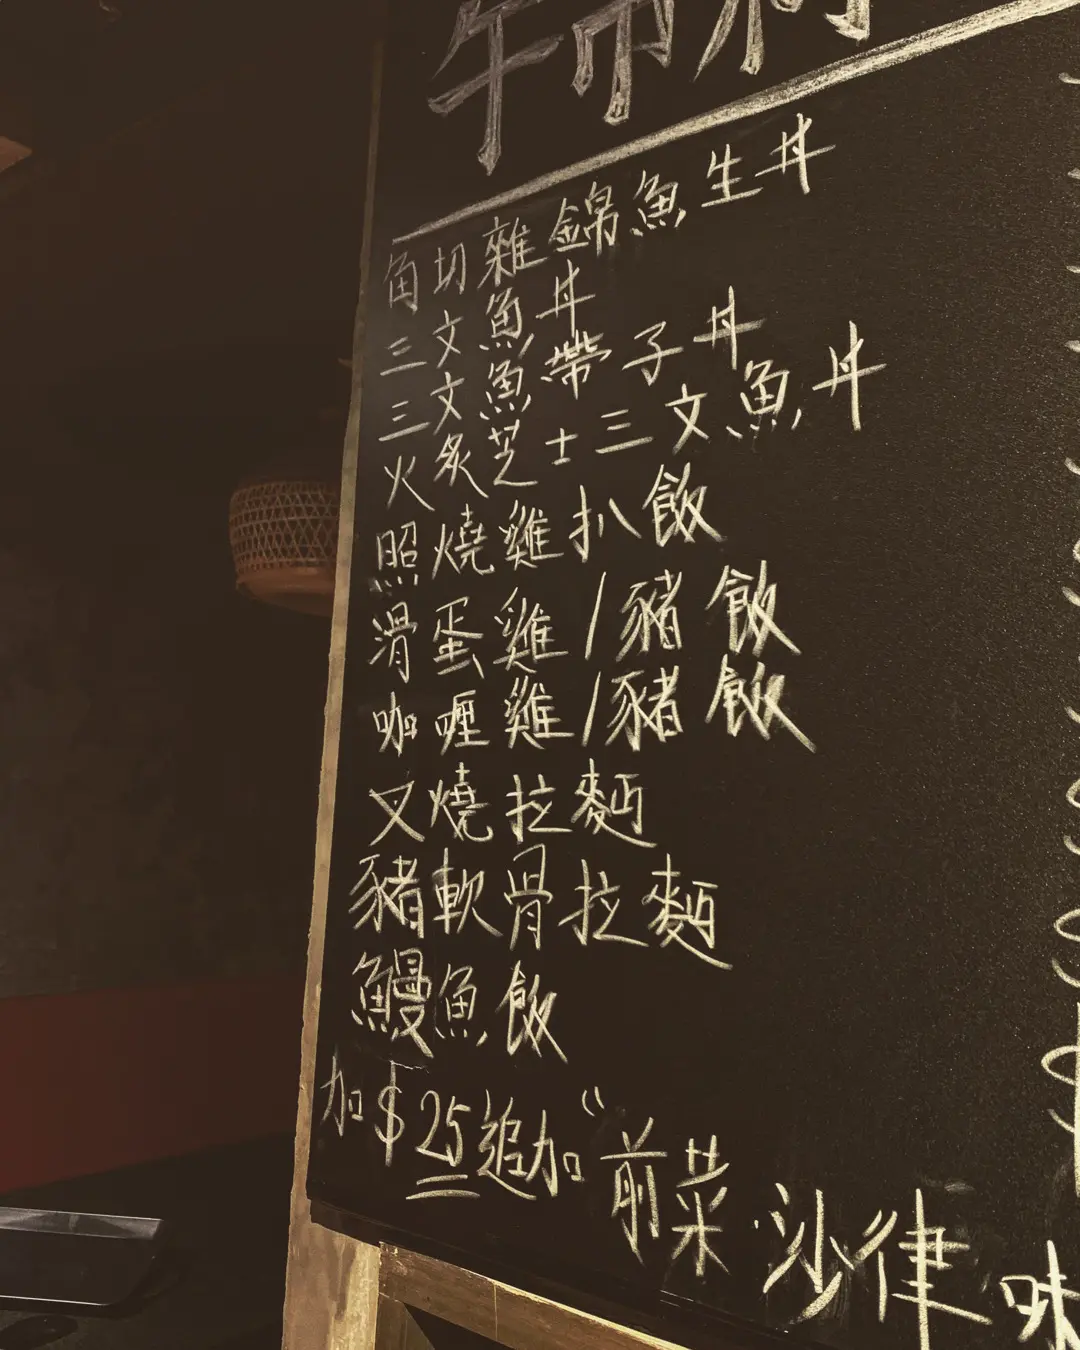 午市
角切雜錦魚生丼
三文魚丼
三文魚帶子丼
火炙芝士三文魚丼
照燒雞扒飯
滑蛋雞/豬飯
咖喱雞/豬飯
叉燒拉麵
豬軟骨拉麵
鰻魚飯
加$25追加“前菜沙律味